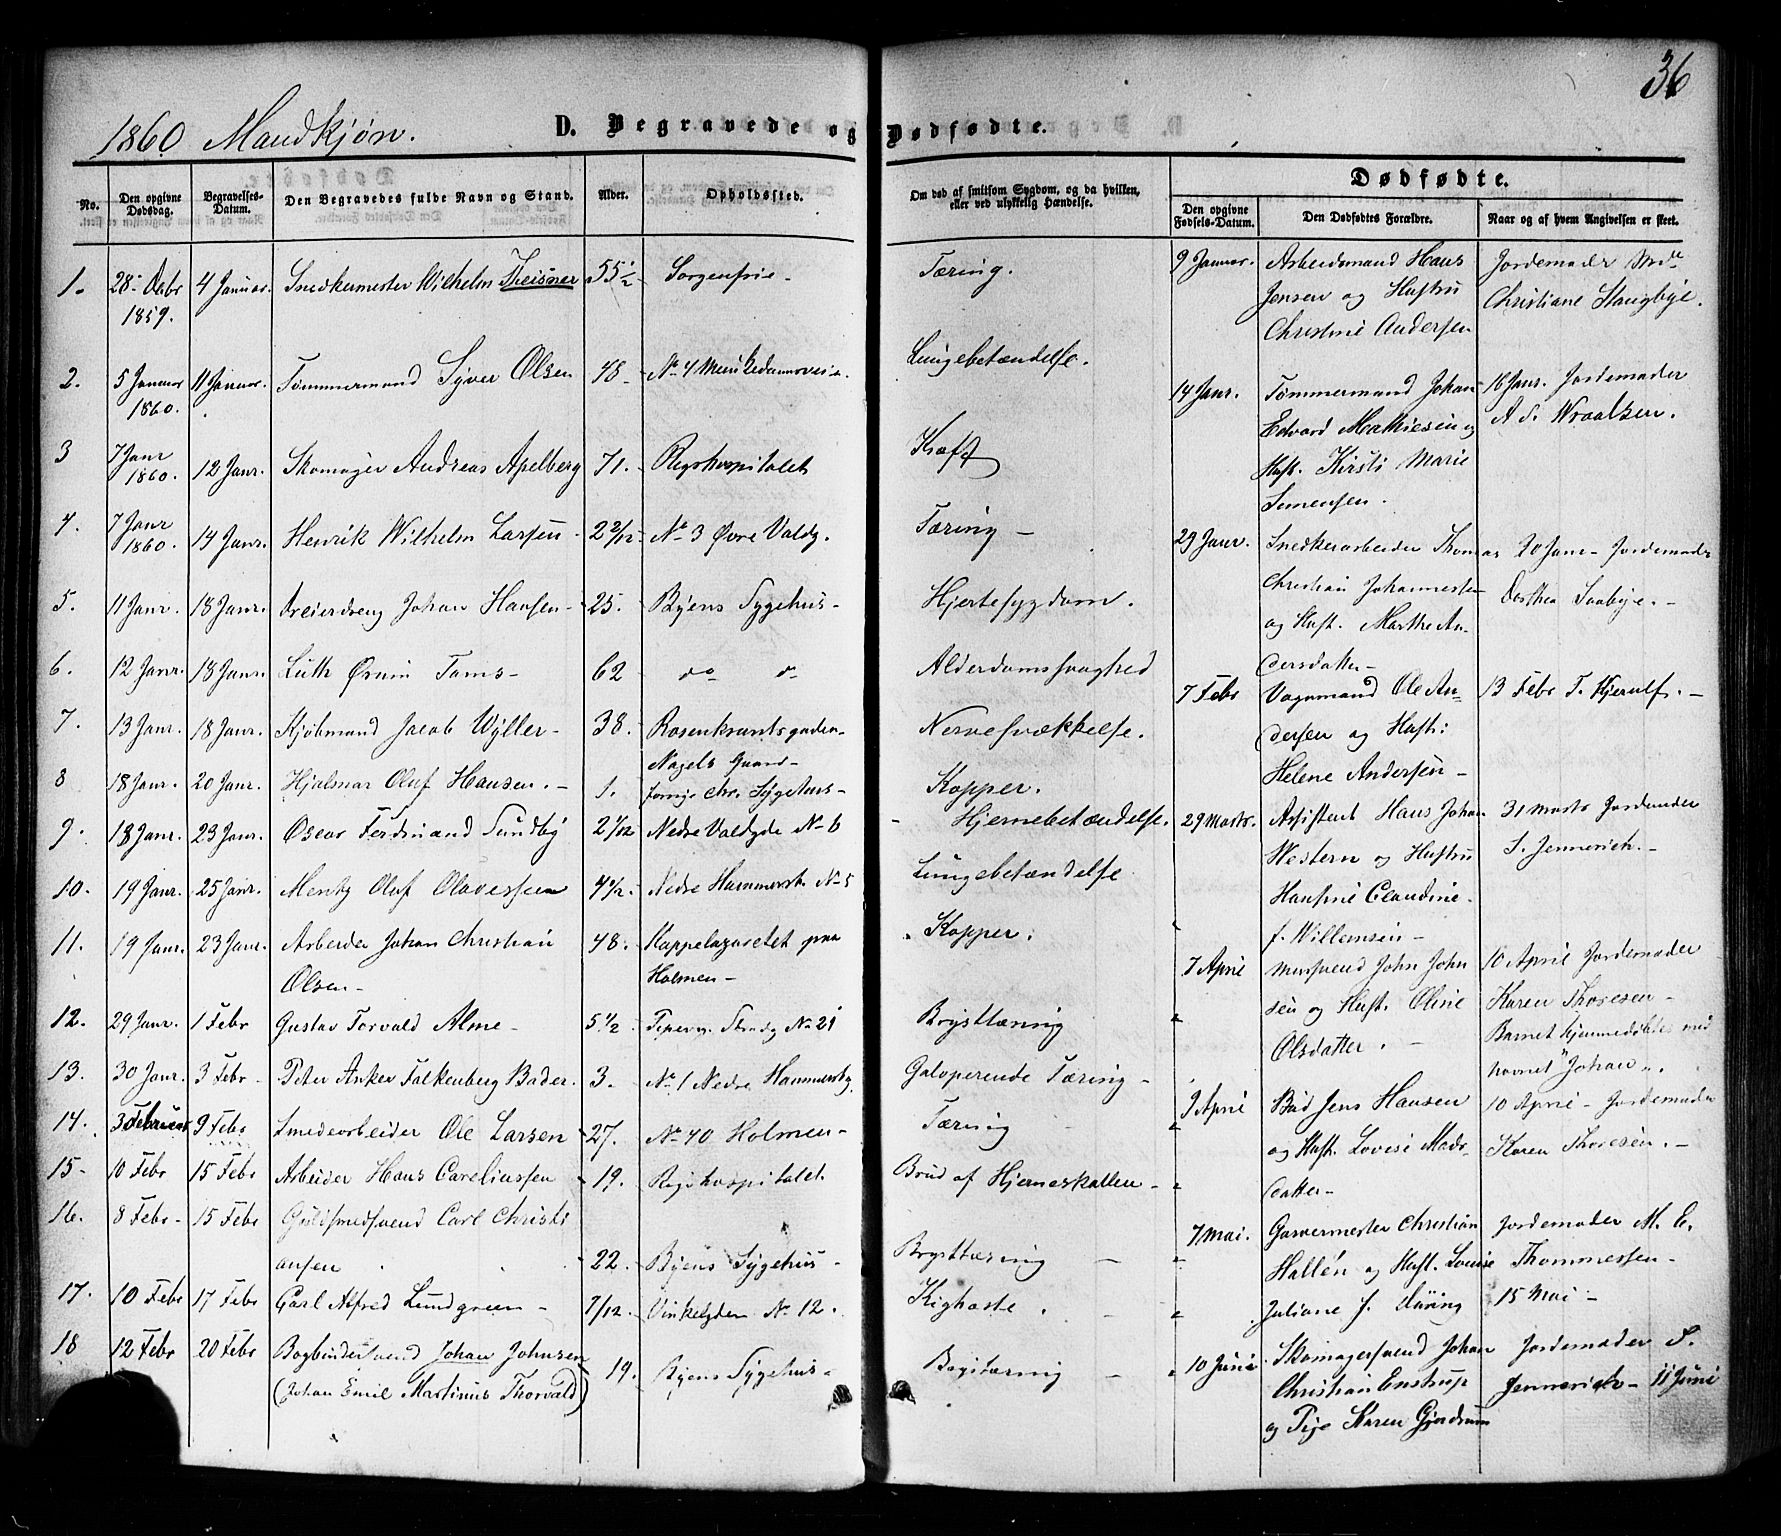 36
1860 Mandkjøn.
D. Begravede og Dødfødte.
No.
Den opgivne Dødsdag.
Begravelses-Datum.
Den Begravedes fulde Navn og Stand.
Alder.
Opholdssted.
Om død af smitsom Sygdom, og da hvilken, eller ved ulykkelig Hændelse.
Dødfødte.
Den opgivne Fødsels-Datum.
Den Dødfødtes Forældre.
Naar og af hvem Angivelsen er skeet.
1. 28 Decbr 1859. 4 Januar. Snedkermester Wilhelm Theisner 55 1/2 Sorgenfrie - Tæring.
2. 5 Januar 1860. 11 Januar. Tømmermand Syver Olsen 48 No 4 Munkedamsvein. Lungebetændelse.
3 7 Janr 1860. 12 Janr. Skomager Andreas Apelberg 71. Rigshospitalet Kræft
4. 7 Janr 1860. 14 Janr. Henrik Wilhelm Larsen 2 2/12 No 3 Øvre Voldg. Tæring -
5. 11 Janr. 18 Janr. Dreierdreng Johan Hansen - 25. Byens Sygehus - Hjertesygdom.
6. 12 Janr. 18 Janr. Tams - 62 do do Alderdomssvaghed
7. 13 Janr. 18 Janr. Kjøbmand Jacob Wyller - 38. Rosenkrantsgaden Nagels Gaard - Nervesvækkelse.
8 18 Janr. 20 Janr. Hjalmar Oluf Hansen. - 1. Chr. Sygehus - Kopper.
9. 18 Janr. 23 Janr. Oscar Ferdinand Sundby 2 1/12 Nedre Voldgde No 6 Hjernebetændelse.
10. 19 Janr. 25 Janr. Mentz Oluf Olavessen 4 1/2. Nedre Hammersb. No 5 Lungebetændelse
11. 19 Janr. 23 Janr. Arbeider Johan Christian Olsen - 48. Koppelazarettet paa Holmen - Kopper.
12. 29 Janr. 1 Febr Gustav Torvald Alme - 5 1/2. Pipervg. Strandg No 21 Brysttæring
13. 30 Janr. 3 Febr - Peter Anker Falkenberg Bader. 3. No 1 Nedre Hammersbg. Galoperende Tæring -
14. 3 Februar 9 Febr Smedearbeider Ole Larsen 27. No 40 Holmen - Tæring
15 - 10 Febr 15 Febr Arbeider Hans Careliussen 19. Rigshospitalet. Brud af Hjerneskallen -
16. 8 Febr - 15 Febr Guldsmedsvend Carl Christiansen 22. Byens Sygehus - Brysttæring
17. 10 Febr 17 Febr Carl Alfred Lundgreen - 7/12. Vinkelgden No 12. Kighoste.
18 12 Febr 20 Febr Bogbindersvend Johan Johnsen (Johan Emil Martinus Thorvald) 19. Byens Sygehus - Brysttæring
9 Januar. Arbeidsmand Hans Jensen og Hustru Christine Andersen Jordemoder Christiane Stangbye.
14 Janr. Tømmermand Johan Edvard Mathiesen og Hust. Kirsti Marie Simensen. 16 Janr. Jordemoder Wraalsen.
29 Janr. Snedkerarbeider Thomas Christian Johannessen og Hust. Marthe Andersdatter - 30 Janr - Jordemoder Dorthea Saabye. -
7 Febr Vognmand Ole Andersen og Hustr: Helene Andersen - 13 Febr T. Kjerulf. -
29 Marts. Assistent Hans Johan Western og Hustru Hansine Claudine f. Willemsen - 31 Marts Jordemoder S. Jennerich. -
7 April Mursvend John Johnsen og Hust. Oline Olsdatter. 10 April Jordemoder Karen Thoresen - Barnet hjemmedøbtes med navnet "Johan".
9 April Jens Hansen og Hust. Lovise Madsdatter - 10 April - Jordemoder Karen Thoresen. -
7 Mai. Garvermester Christian Hallén og Hust. Louise Juliane f. Düring Jordemoder M. E. Thommessen - 15 Mai -
10 Juni. Skomagersvend Johan Christian Enstrup og Pige Karen Gjordrum Jordemoder S. Jennerich - 11 Juni